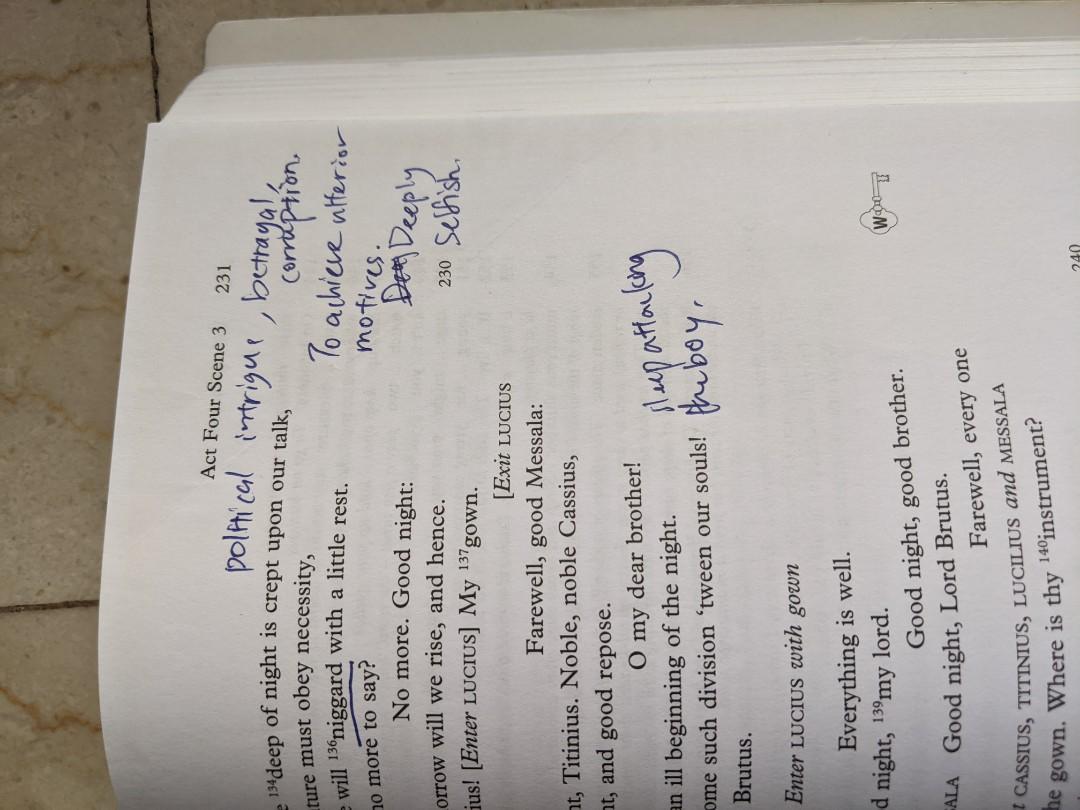 Act Four Scene 3 231
political intrigue, betrayal,
corruption.
134deep of night is crept upon our talk,
ture must obey necessity,
To achieve ulterior
will 136niggard with a little rest.
motives.
no more to say?
Deeply
No more. Good night:
230
selfish.
orrow will we rise, and hence.
ius! [Enter LUCIUS] My 137gown.
[Exit LUCIUS
Farewell, good Messala:
ht, Titinius. Noble, noble Cassius,
ht, and good repose.
O my dear brother!
sleep attacking
an ill beginning of the night.
the boy.
ome such division ‘tween our souls!
Brutus.
Enter LUCIUS with gown
Everything is well.
d night, 139my lord.
W
Good night, good brother.
ALA Good night, Lord Brutus.
Farewell, every one
CASSIUS, TITINIUS, LUCILIUS and MESSALA
he gown. Where is thy 140instrument?
240